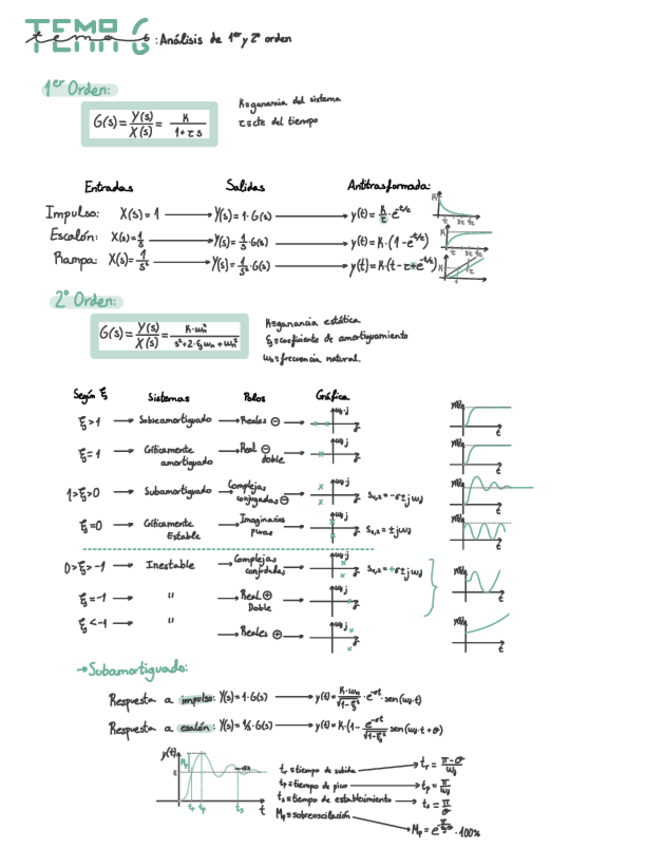 TEMA 6
tema 6: Análisis de 1er y 2º orden
1er Orden:
G(s) = Y(s)/X(s) = K/(1+τs)
K=ganancia del sistema
τ=cte del tiempo
Entradas Salidas Antitrasformada:
Impulso: X(s)=1 → Y(s)=1·G(s) → y(t)=K/τ·e^(-t/τ)
Escalón: X(s)=1/s → Y(s)=1/s·G(s) → y(t)=K·(1-e^(-t/τ))
Rampa: X(s)=1/s² → Y(s)=1/s²·G(s) → y(t)=K·(t-τ+e^(-t/τ))
2º Orden:
G(s) = Y(s)/X(s) = K·ωn²/(s²+2·ξωn+ωn²)
K=ganancia estática
ξ=coeficiente de amortiguamiento
ωn=frecuencia natural.
Según ξ Sistemas Polos Gráfica
ξ>1 → Sobreamortiguado → Reales ⊖ →
ξ=1 → Críticamente amortiguado → Real ⊖ doble →
1>ξ>0 → Subamortiguado → Complejas conjugadas ⊖ → S1,2=-σ±jωd
ξ=0 → Críticamente Estable → Imaginarios puros → S1,2=±jωd
0>ξ>-1 → Inestable → Complejas conjudadas → S1,2=+σ±jωd
ξ=-1 → " → Real ⊕ Doble →
ξ<-1 → " → Reales ⊕ →
→Subamortiguado:
Respuesta a impulso: Y(s)=1·G(s) → y(t)=K·ωn/√(1-ξ²)·e^(-σt)·sen(ωd·t)
Respuesta a escalón: Y(s)=1/s·G(s) → y(t)=K·(1-e^(-σt)/√(1-ξ²) sen(ωd·t+θ)
y(t)
Mp
K
tr tp ts t
tr=tiempo de subida → tr=(π-θ)/ωd
tp=tiempo de pico → tp=π/ωd
ts=tiempo de establecimiento → ts=π/σ
Mp=sobreoscilación → Mp=e^(-π/ωd·σ)·100%